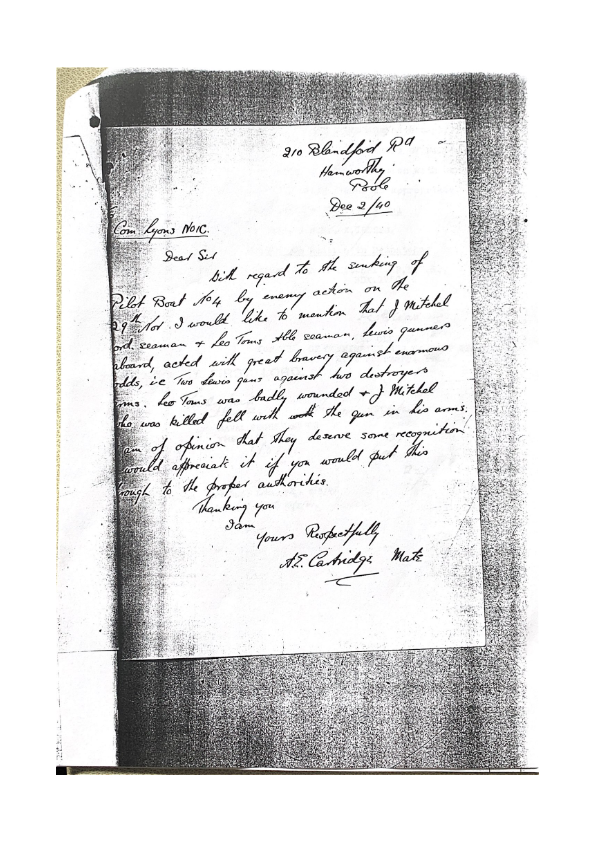 210 Blandford Rd
Hamworthy
Poole
Dec 2/40
Com. Lyons NOIC.
Dear Sir
With regard to the sinking of
Pilot Boat No 4 by enemy action on the
29th Nov. I would like to mention that J Mitchel
ord seaman + Leo Toms Able seaman, Lewis gunners
aboard, acted with great bravery against enormous
odds, i.e Two Lewis guns against two destroyers
rms. Leo Toms was badly wounded + J Mitchel
who was killed fell with the gun in his arms.
am of opinion that they deserve some recognition
would appreciate it if you would put this
rough to the proper authorities.
Thanking you
I am
Yours Respectfully
A.E. Cartridge Mate